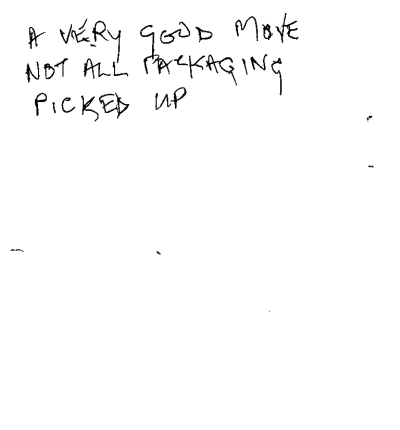 A VERY GOOD MOVE
NOT ALL PACKAGING
PICKED UP